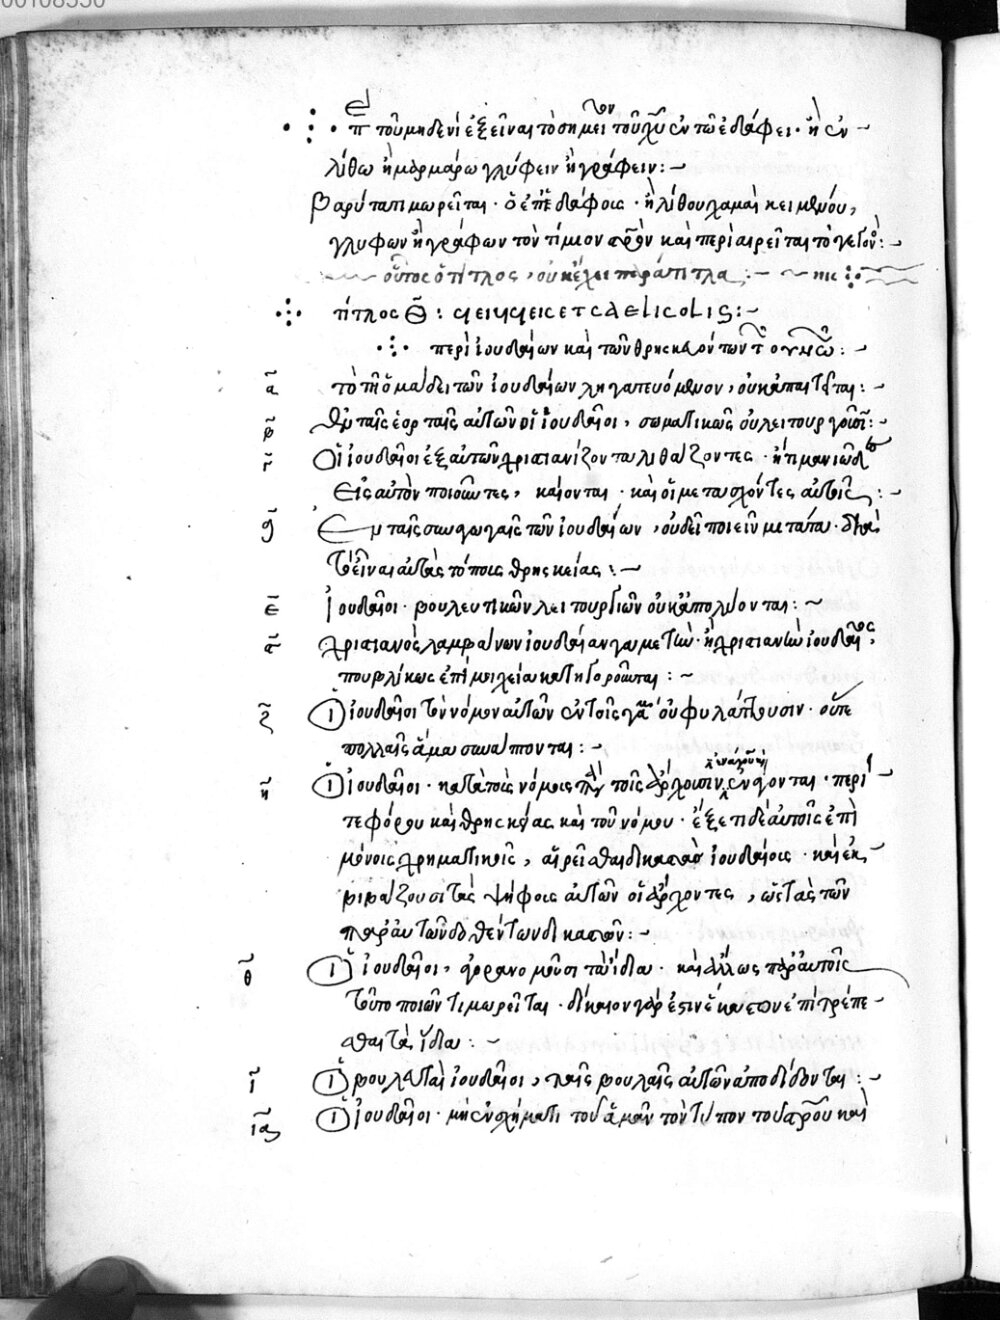 π τοῦ μηδενὶ ἐξεῖναι τὸ σημεῖον τοῦ χυ ἐν τῷ ἐδάφει· ἢ ἐν
λίθω ἢ μαρμάρω γλύφειν ἢ γράφειν:
βαρύτατα τιμωρεῖται· ὁ ἐπ' ἐδάφοις· ἢ λίθου χαμαὶ κειμένου,
γλύφων ἢ γράφων τὸν τίμιον στρον καὶ περιαιρεῖται τὸ γεγονός:
οὗτος ὁ τίτλος, οὐκ ἔχει παράτιτλα:
τίτλος θ:
περὶ ἰουδαίων καὶ τῶν θρησκευόντων τὸν ουνον:
α τὸ τῇ ὁμάδι τῶν ἰουδαίων ληγατευόμενον, οὐκ ἀπαιτεῖται:
β ἐν ταῖς ἑορταῖς αὐτῶν οἱ ἰουδαῖοι, σωματικῶς οὐ λειτουργοῦσι:
γ Οἱ ἰουδαῖοι ἐξ αὐτῶν χριστιανίζοντα λιθάζοντες· ἢ τι μανιῶδες
εἰς αὐτὸν ποιοῦντες, καίονται· καὶ οἱ μετασχόντες αὐτοῖς:
δ Ἐν ταῖς συναγωγαῖς τῶν ἰουδαίων, οὐ δεῖ ποιεῖν μετάτα· διὰ
τὸ εἶναι αὐτὰς τόπους θρησκείας:
ε Ἰουδαῖοι· βουλευτικῶν λειτουργιῶν οὐκ ἀπολύονται:
ς χριστιανὸς λαμβάνων ἰουδαίαν γαμετὴν· ἢ χριστιανὴν ἰουδαῖος,
πουβλίκως ἐπὶ μοιχεία κατηγοροῦνται:
ζ Οἱ ἰουδαῖοι τὸν νόμον αὐτῶν ἐν τοῖς γάμοις οὐ φυλάττουσιν· οὔτε
πολλαῖς ἅμα συνάπτονται:
η Οἱ ἰουδαῖοι· κατὰ τοὺς νόμους παρὰ τοῖς ἄρχουσιν ἐνάγουσι καὶ ἐνάγονται· περί
τε φόρου καὶ θρησκείας καὶ τοῦ νόμου· ἔξεστι δὲ αὐτοῖς ἐπὶ
μόνοις χρηματικοῖς, αἱρεῖσθαι δικαστὰς ἰουδαίους· καὶ ἐκ
βιβάζουσι τὰς ψήφους αὐτῶν οἱ ἄρχοντες, ὡς τὰς τῶν
παρ' αὐτῶν δοθέντων δικαστῶν:
θ Οἱ ἰουδαῖοι, ὀρδινεύουσι τὰ ἴδια· καὶ ὁ ἄλλως παρ' αὐτοῖς
τοῦτο ποιῶν τιμωρεῖται· δίκαιον γάρ ἐστιν ἕκαστον ἐπιτρέπε
σθαι τὰ ἴδια:
ι Οἱ βουλευταὶ ἰουδαῖοι, ταῖς βουλαῖς αὐτῶν ἀποδίδονται:
ια Οἱ ἰουδαῖοι· μὴ ἐν σχήματι τοῦ ἀμὰν τὸν τύπον τοῦ στρου καὶ